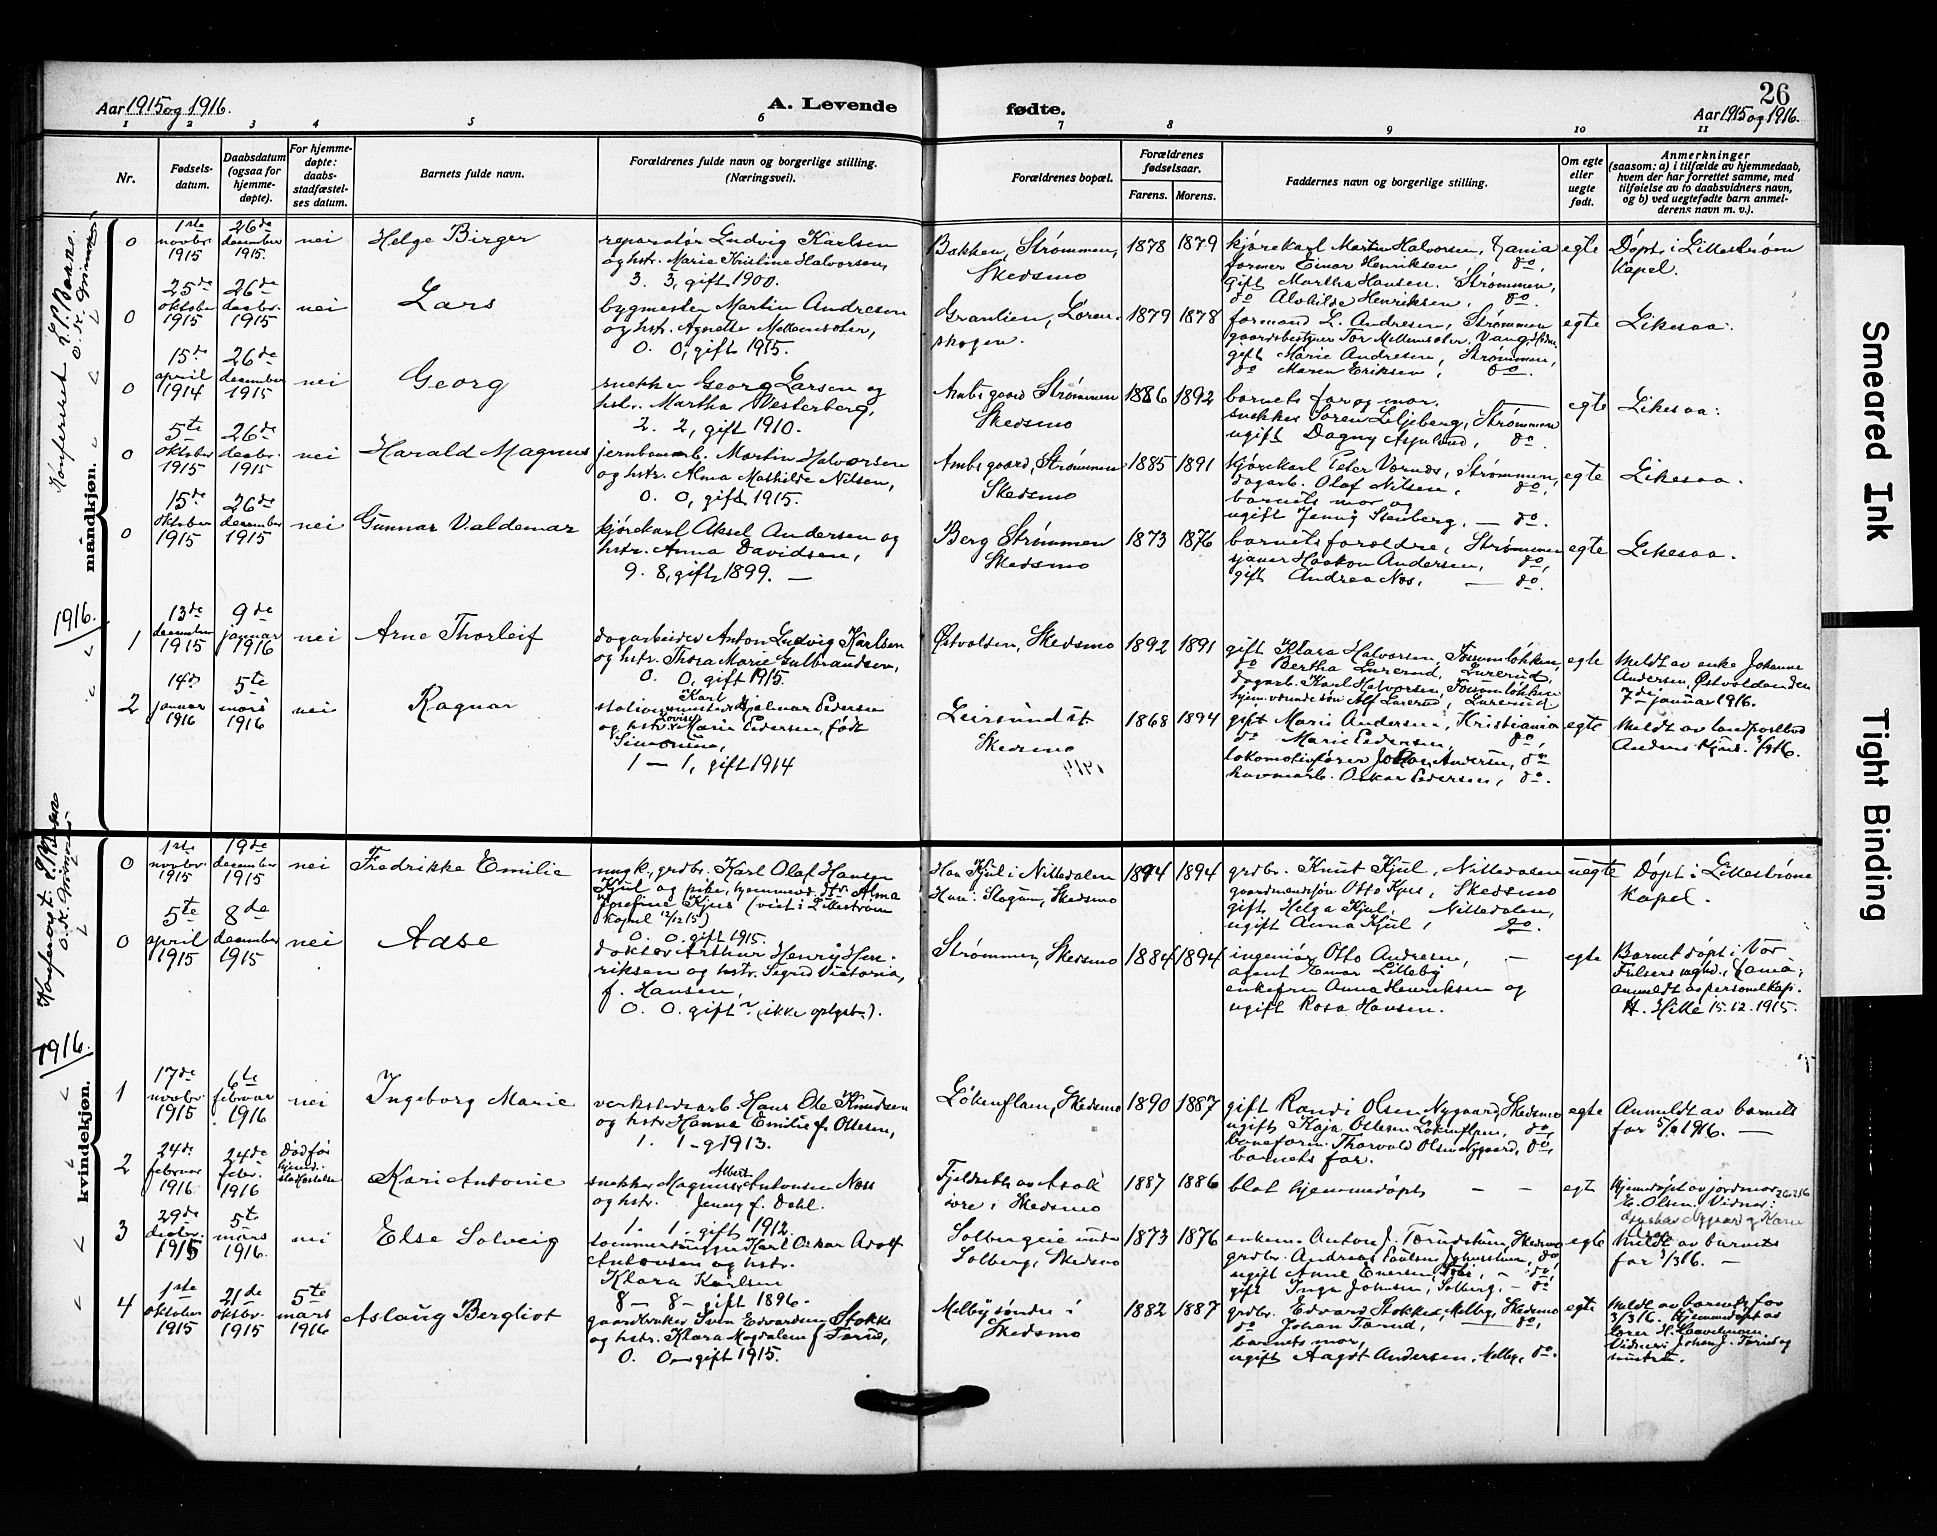 Aar 1915 og 1916.
A. Levende
fødte.
26
Aar 1915 og 1916.
1 2 3 4 5 6 7 8 9 10 11
Nr.
Fødsels-
datum.
Daabsdatum
(ogsaa for
hjemme-
døpte).
For hjemme-
døpte:
daabs-
stadfæstel-
ses datum.
Barnets fulde navn.
Forældrenes fulde navn og borgerlige stilling.
(Næringsvei).
Forældrenes bopæl.
Forældrenes
fødselsaar.
Farens. Morens.
Faddernes navn og borgerlige stilling.
Om egte
eller
uegte
født.
Anmerkninger
(saasom: a) i tilfælde av hjemmedaab,
hvem der har forrettet samme, med
tilføielse av to daabsvidners navn,
og b) ved uegtefødte barn anmel-
derens navn m. v.).
mandkjøn.
0
1ste
novbr.
1915
26de
desember
1915.
nei
Helge Birger
reparatør Ludvig Karlsen
og hstr. Marie Kristine Halvorsen,
3. 3, gift 1900.
Bakken, Strømmen,
Skedsmo
1878 1879
kjørekarl Martin Halvorsen,
former Einar Henriksen, do,
gift Martha Hansen, Strømmen,
do Alvhilde Henriksen, do.
egte
Døpt i Lillestrøm
Kapel.
0
25de
oktober
1915
26de
desbr.
1915
nei
Lars
bygmester Martin Andresen
og hstr. Agnethe Mellemsæter,
0. 0, gift 1915.
Granlien, Loren-
skogen.
1879 1878
formand L. Andresen, Strømmen
gaardsbestyrer Tor Mellemsæter, Vang,
gift Marie Andresen, Strømmen,
do Maren Eriksen, do.
egte
Likesaa.
0
15de
april
1914
26de
desember
1915
nei
Georg
snekker Georg Larsen og
hstr. Martha Westerberg,
2. 2, gift 1910.
Strømmen
Skedsmo
1886 1892
barnets far og mor.
snekker Søren Liljeberg, Strømmen
ugift Dagny do.
egte
Likesaa.
0
5te
oktober
1915
26de
desbr.
1915
nei
Harald Magnus
jernbanearb. Martin Halvorsen
og hstr. Alma Mathilde Nilsen,
0. 0, gift 1915.
Strømmen
Skedsmo
1885 1891
kjørekarl Peter Strømmen,
dagarb. Olaf Nilsen, do,
barnets mor og
ugift Jenny Stenberg, — do.
egte
Likesaa.
0
15de
oktober
1915
26de
desember
1915
nei
Gunnar Valdemar
kjørekarl Aksel Andersen og
hstr. Anna Davidsen,
9. 8, gift 1899. —
Berg Strømmen
Skedsmo
1873 1876
barnets forældre, Strømmen
Haakon Andersen, do,
gift Andrea Næs, — do.
egte
Likesaa.
1916.
1
13de
desember
1915
9de
januar
1916
nei
Arne Thorleif
dagarbeider Anton Ludvig Karlsen
og hstr. Thora Marie Gulbrandsen,
0. 0, gift 1915.
Østvolden, Skedsmo
1892 1891
gift Klara Halvorsen, Fossumløkken,
do Bertha Lurerud, Lurerud,
dagarb. Karl Halvorsen, Fossumløkken
hjemværende søn Alf Lurerud, Lurerud
egte
Meldt av enke Johanne
Andersen, Østvolden den
7de januar 1916.
2
14de
januar
1916
5te
mars
1916
nei
Ragnar
Karl
Hjalmar Pedersen
Lovise
og hstr. Marie Pedersen, født
Simonsen,
1 — 1, gift 1914
Leirsund st
Skedsmo
1868 1894
gift Marie Andersen, Kristiania
do Marie Pedersen, do,
lokomotivfører Johan Andersen, do
havnearb. Oskar Pedersen, do.
egte
Meldt av landpostbud
1916.
kvindekjøn.
0
1ste
novbr.
1915
19de
desember
1915
nei
Fredrikke Emilie
ungk., grdbr. Karl Olaf Hansen
Kjul og pike, hjemmev. dtr. Alma
Josefine Kjus (viet i Lillestrøm
kapel 12/12 15)
0. 0. gift 1915.
Han Kjul i Nittedalen
Hun: Skedsmo
1894 1894
grdbr. Knut Kjul, Nittedalen
gaardmandssøn Otto Kjus, Skedsmo
gift Helga Kjul, Nittedalen,
ugift Anna Kjul, do.
uegte
Døpt i Lillestrøm
kapel.
0
5te
april
1915
8de
desember
1915
nei
Adse
doktor Arthur Henry Hen-
riksen og hstr. Sigrid Victoria,
f. Hansen,
0. 0. gift? (ikke oplyst.).
Strømmen, Skedsmo
1884 1894
ingeniør Otto Andresen, —
agent Einar Lilleby
enkefru Anna Henriksen og
ugift Rosa Hansen.
egte
Barnet døpt i Vor
Frelsers
anmeldt av personelkap.
H. Hille 15.12.1915.
1916.
1
17de
novbr.
1915
6te
februar
1916
nei
Ingeborg Marie
verkstedsarb. Hans Ole Knudsen
og hstr. Hanna Emilie f. Ottesen,
1. 1 - g 1913.
Løkenflaen, Skedsmo
1890 1887
gift Randi Olsen Nygaard, Skedsmo
ugift Kaja Ottesen Løkenflaen, do,
Thorvald Olsen Nygaard, do,
barnets far.
egte
Anmeldt av barnets
far 1916. —
2
24de
februar
1916
24de
febr.
1916
Død før
hjemd.
stadfæstelse
Kari Antonie
Albert
snekker Magnus Antonsen Næss
og hstr. Jenny f. Dahl.
1. 1. gift 1912.
av Asak
øvre i Skedsmo
1887 1886
blot hjemmedøpt — —
egt
Hjemdøpt av jordmor 26 2 16
E. Olsen. Vidner:
Nygaar og Karen
3
29de
desbr.
1915
5te
mars
1916.
nei
Else Solveig
Karl Oskar Adolf
Antonsen og hstr.
Klara Karlsen
8 — 8 — gift 1896.
Solbergeie under
Solberg, Skedsmo
1873 1876
enkem. Anton J. Skedsmo
grdbr. Andreas Paulsen do
ugift Anne Evensen, do,
gift Inga Johnsen, Solberg, — do
egte
Meldt av barnets
far 3/3 16. —
4
1ste
oktober
1915
21de
oktbr.
1915
5te
mars
1916
Aslaug Bergliot
gaardbruker Sven Edvardsen Stokke
og hstr. Klara Magdalena f. Tærud,
0. 0 — gift 1915.
Melby søndre i
Skedsmo
1882 1887
grdbr. Edvard Stokke, Melby, Skedsmo
do Johan Tærud, — do,
barnets mor,
ugift Aagot Andersen, Melby, do.
egte
Meldt av barnets far
3/3 16. Hjemmedøpt av
Vidner: Johan J. Tærud og
hustru.
Smeared Ink
Tight Binding